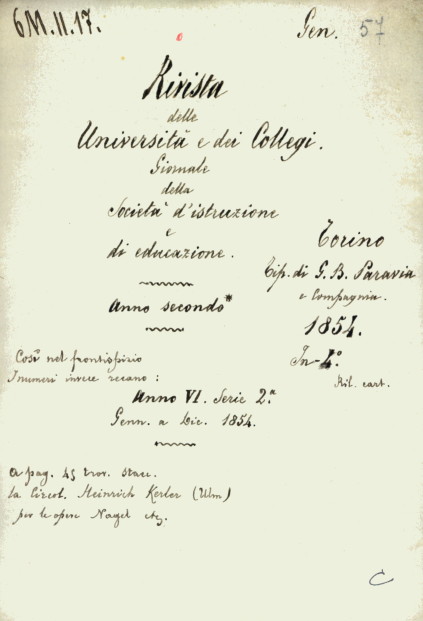 6M.II.17.
Gen. 57
Rivista
delle
Università e dei Collegi.
Giornale
della
Società d'istruzione
e
di educazione.
Torino
Tip. di G. B. Paravia
e Compagnia.
1854.
In-4°.
Ril. cart.
Anno secondo*
Così nel frontispizio
I numeri invece recano:
Anno VI. Serie 2.a
Genn. a Dic. 1854.
A pag. 45 trov. stacc.
la Circol. Heinrich Kerler (Ulm)
per le opere
C